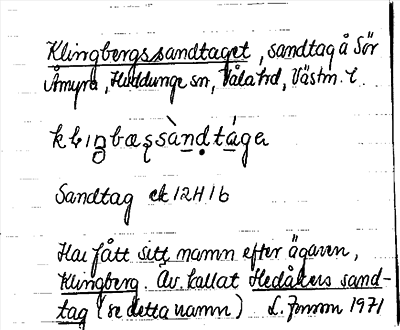 Klingbergssandtaget, sandtag å Sör
Åmyra, Huddunge sn, Våla hd, Västm. l.
Sandtag ek 12H 1b
Har fått sitt namn efter ägaren,
Klingberg. Äv. kallat Hedåkers sand-
tag (se detta namn) L. Jonson 1971